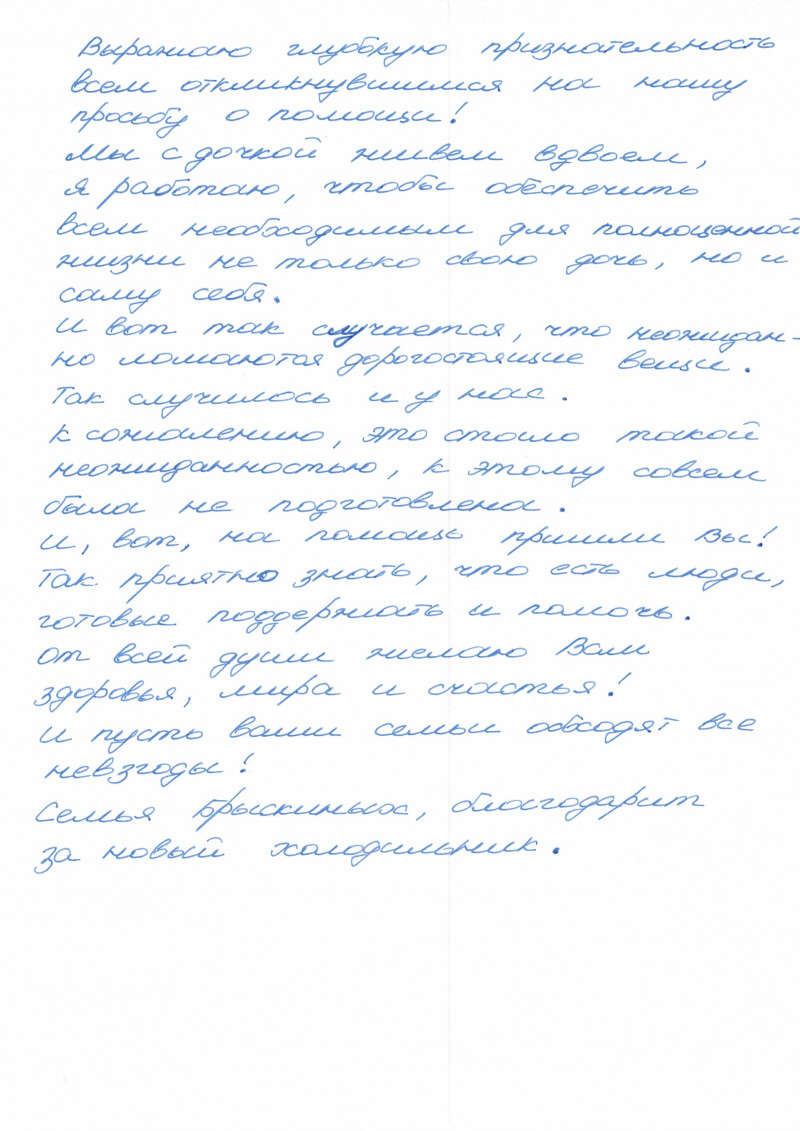 Выражаю глубокую признательность
всем откликнувшимся на нашу
просьбу о помощи!
Мы с дочкой живем вдвоем,
я работаю, чтобы обеспечить
всем необходимым для полноценной
жизни не только свою дочь, но и
саму себя.
И вот так случается, что неожидан-
но ломаются дорогостоящие вещи.
Так случилось и у нас.
К сожалению, это стало такой
неожиданностью, к этому совсем
была не подготовлена.
И, вот, на помощь пришли Вы!
Так приятно знать, что есть люди,
готовые поддержать и помочь.
От всей души желаю Вам
здоровья, мира и счастья!
И пусть ваши семьи обходят все
невзгоды!
Семья Брыскиных, благодарит
за новый холодильник.